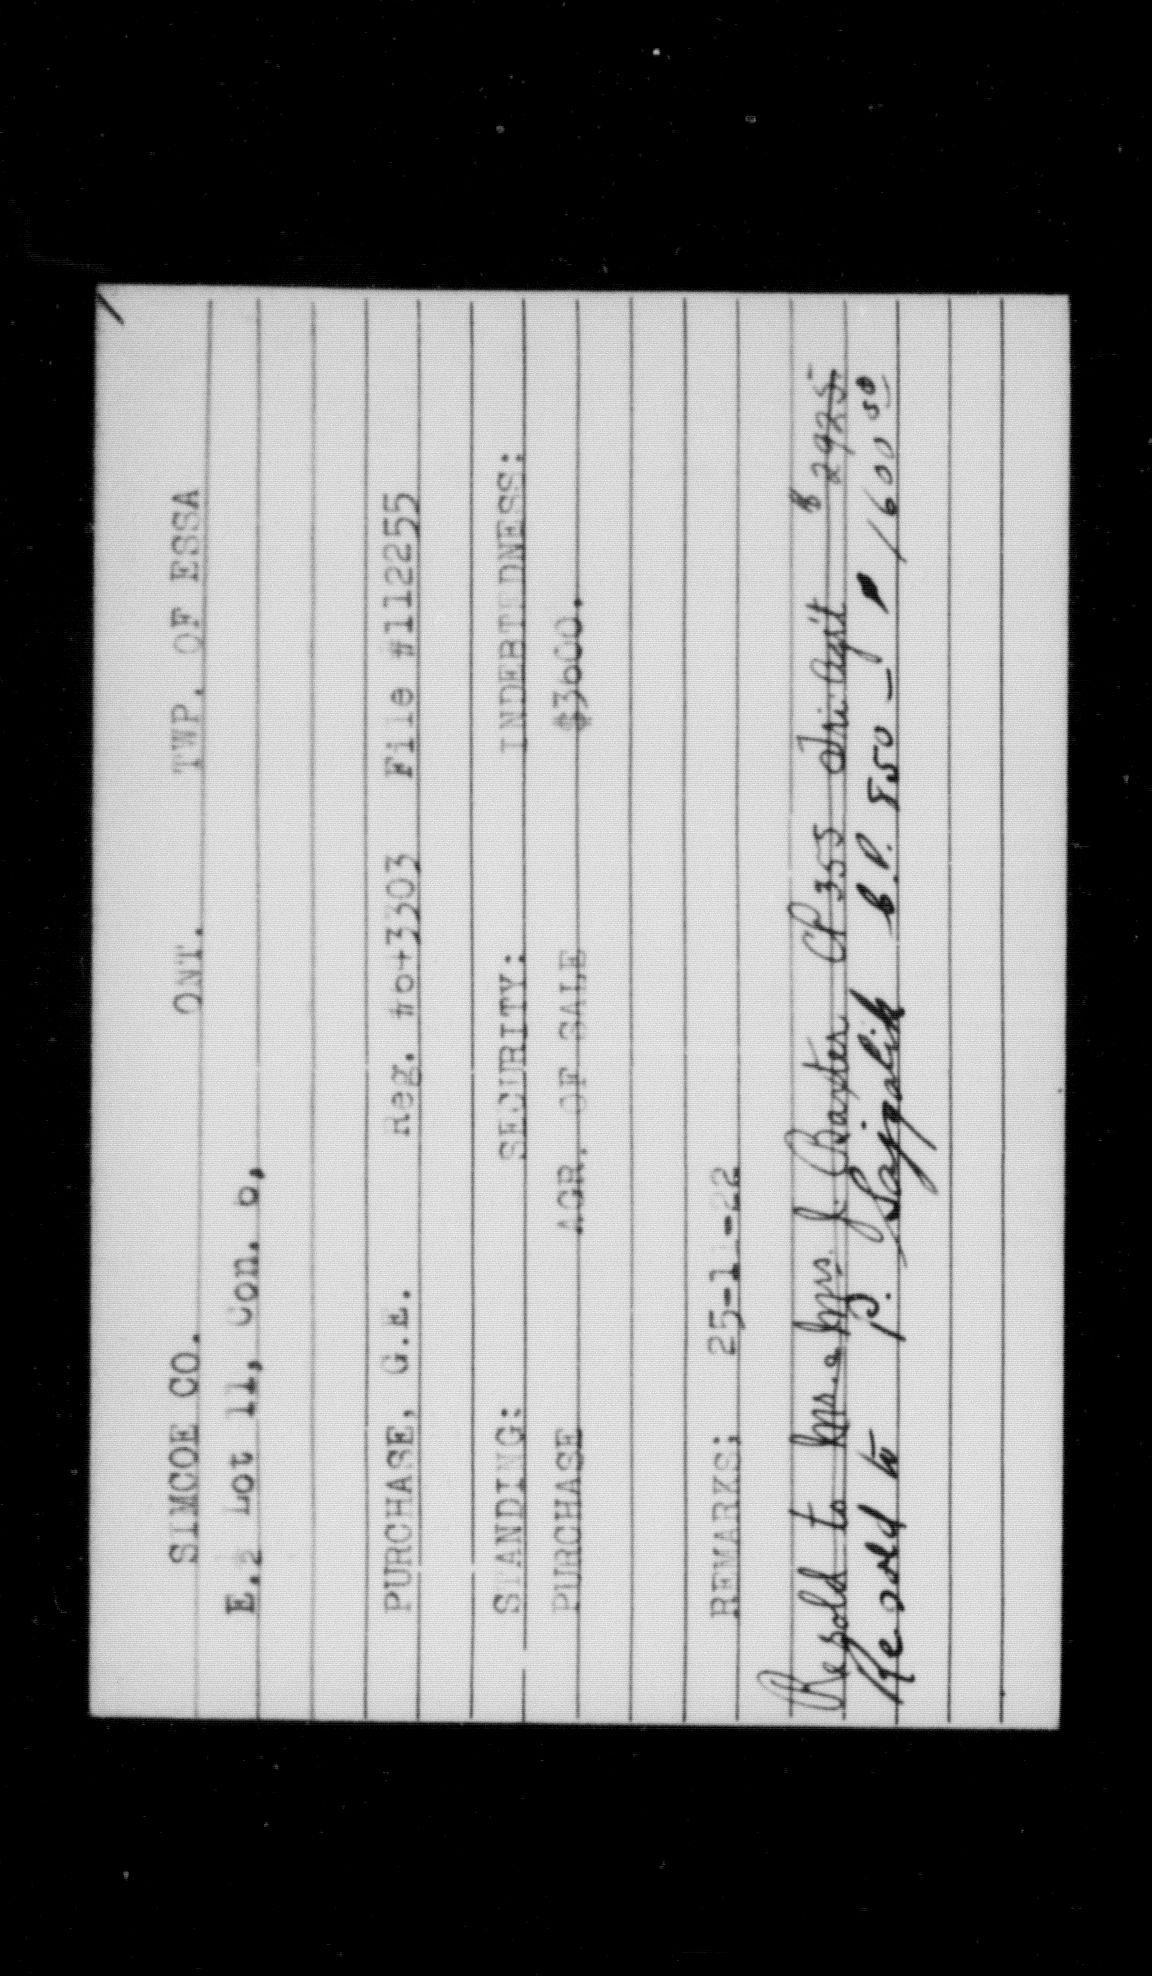 SIMCOE CO. ONT. TWP. OF ESSA
E.2 Lot 11, Con. 6,
PURCHASE, G.E. Reg. #643303 File #112255
STANDING: SECURITY: INDEBTEDNESS:
PURCHASE AGR. OF SALE $3600.
REMARKS: 25-11-22
Resold to Mr. & Mrs. J. Baxter CP 355 Agr't $2925.
Resold to P. C.P. 850 – 1600 50